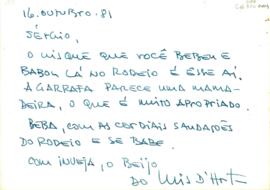 16.OUTUBRO.81
SÉRGIO,
O UISQUE QUE VOCÊ BEBEU E
BABOU LÁ NO RODEIO É ESSE AÍ.
A GARRAFA PARECE UMA MAMA-
DEIRA, O QUE É MUITO APROPRIADO.
BEBA, COM AS CORDIAIS SAUDAÇÕES
DO RODEIO E SE BABE.
COM INVEJA, O BEIJO
DO LUIS D'HORTA